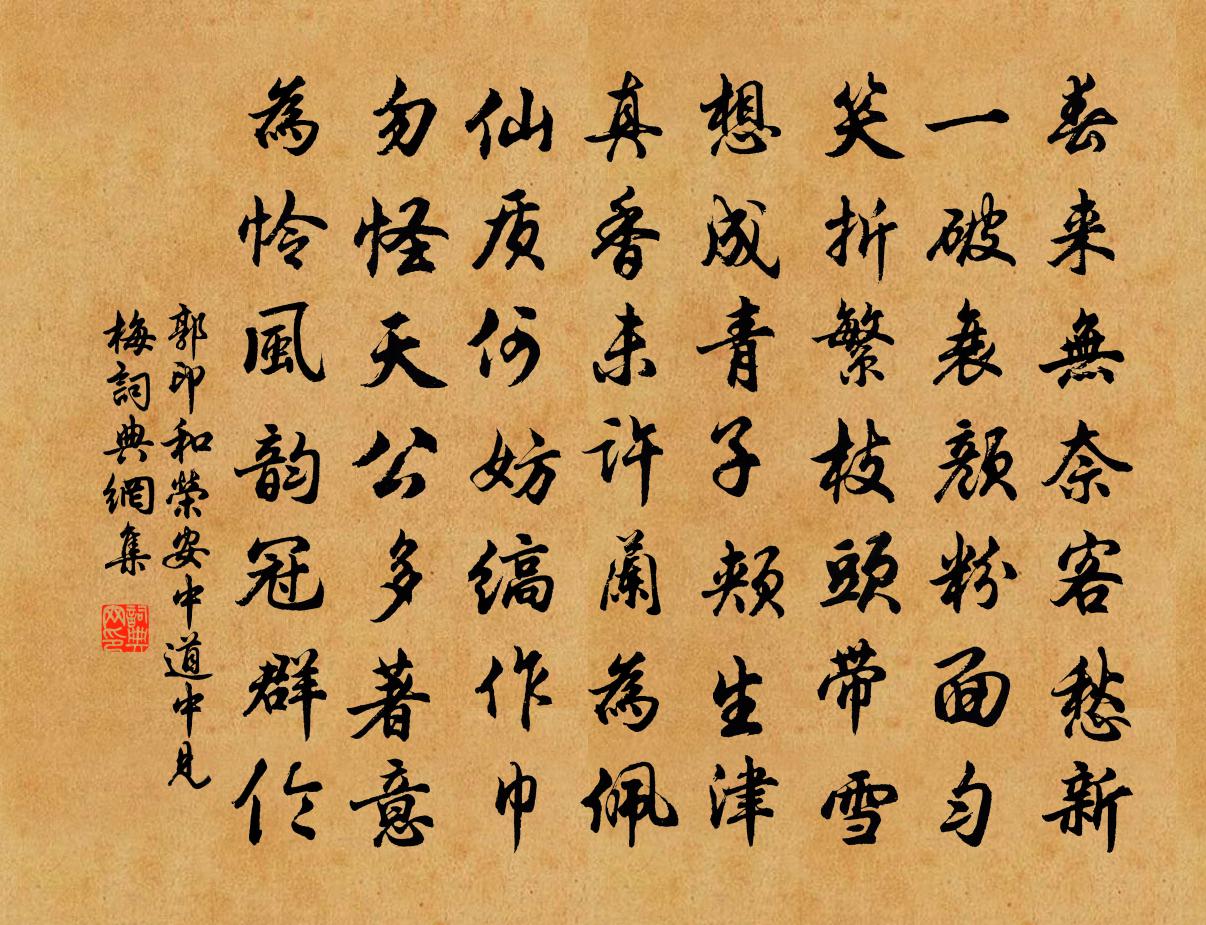 春来無奈客愁新
一破衰顔粉面匀
笑折繁枝頭带雪
想成青子頰生津
真香未許蘭為佩
仙质何妨縞作巾
勿怪天公多著意
為怜風韵冠群伦
郭印和榮安中道中見
梅詞典網集
詞典网印